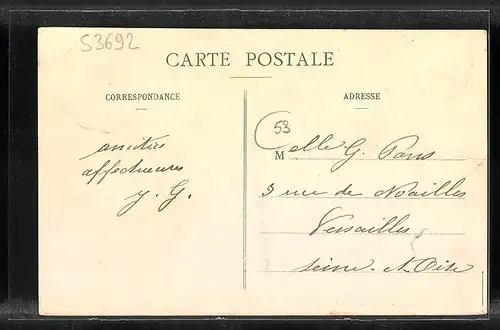 53692
CARTE POSTALE
CORRESPONDANCE
amitiés
affectueuses
y. G.
ADRESSE
53
Melle G. Pons
3 rue de Noailles
Versailles
Seine. et. Oise